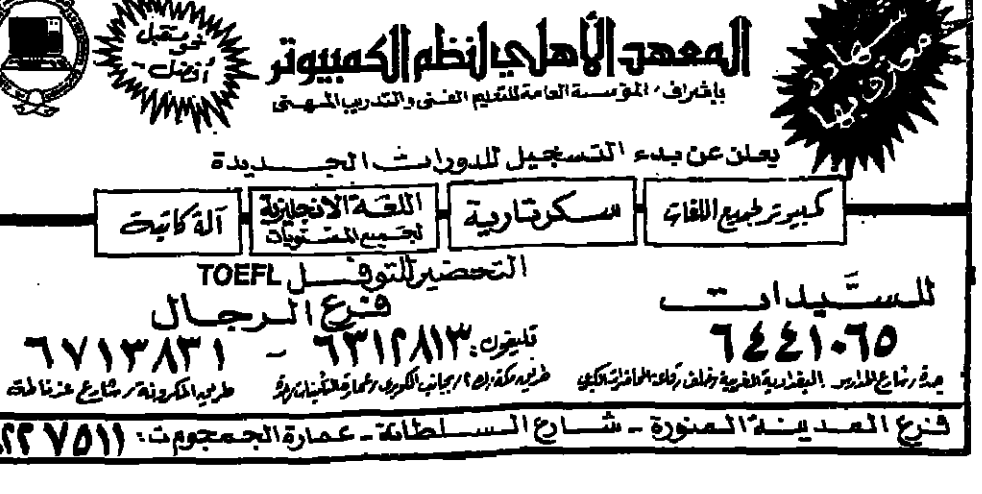 شهادة معترف بها
نحو مستقبل أفضل
المعهد الأهلي لنظم الكمبيوتر
بإشراف المؤسسة العامة للتعليم الفني والتدريب المهني
يعلن عن بدء التسجيل للدورات الجديدة
كمبيوتر لجميع اللغات
سكرتارية
اللغة الانجليزية
لجميع المستويات
آلة كاتبة
التحضير للتوفل TOEFL
للسيَّدات
٦٤٤١٠٦٥
جدة شارع المدارس البغدادية الغربية خلف
فرع الرجال
تليفون: ٦٣١٢٨١٣ - ٦٧١٣٨٣١
طريق مكة بجانب الكوبري عمارة
طريق المكرونة شارع غرناطة
فرع المدينة المنورة - شارع السلطانة - عمارة الجمجوم ت: ٨٢٢٧٥١١